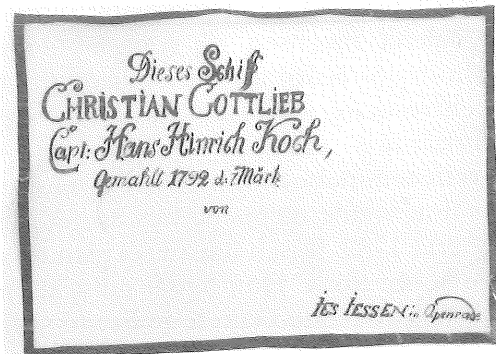 Dieses Schiff
CHRISTIAN GOTTLIEB
Capt: Hans Hinrich Koch,
Gemahlt 1792 d. 7 Märtz
von
IES IESSEN in Apenrade